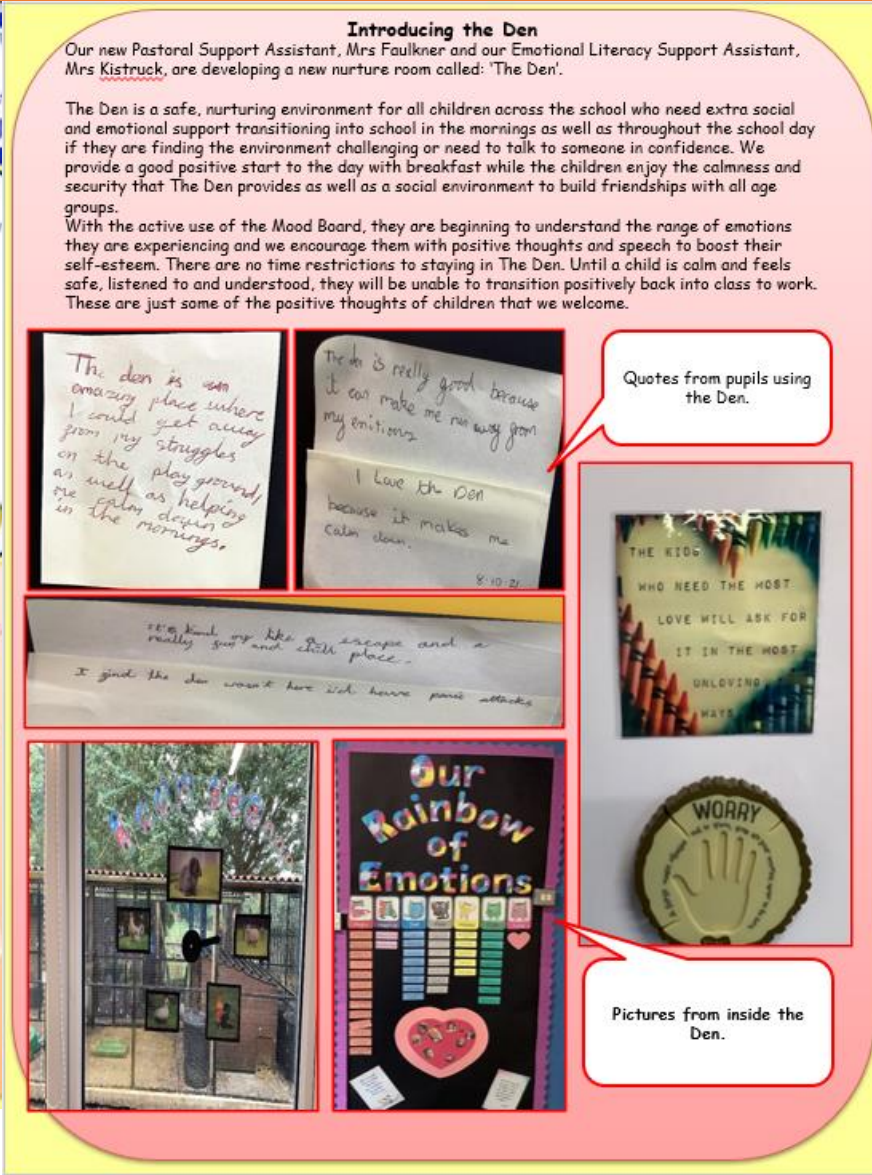 Introducing the Den
Our new Pastoral Support Assistant, Mrs Faulkner and our Emotional Literacy Support Assistant,
Mrs Kistruck, are developing a new nurture room called: 'The Den'.
The Den is a safe, nurturing environment for all children across the school who need extra social
and emotional support transitioning into school in the mornings as well as throughout the school day
if they are finding the environment challenging or need to talk to someone in confidence. We
provide a good positive start to the day with breakfast while the children enjoy the calmness and
security that The Den provides as well as a social environment to build friendships with all age
groups.
With the active use of the Mood Board, they are beginning to understand the range of emotions
they are experiencing and we encourage them with positive thoughts and speech to boost their
self-esteem. There are no time restrictions to staying in The Den. Until a child is calm and feels
safe, listened to and understood, they will be unable to transition positively back into class to work.
These are just some of the positive thoughts of children that we welcome.
The den is an
amazing place where
I could get away
from my struggles
on the playground,
as well as helping
me calm down
in the mornings.
The den is really good because
it can make me run away from
my emitions
I Love the Den
because it makes me
calm down.
8-10-21
Quotes from pupils using
the Den.
it's kind of like a escape and a
really fun and chill place.
I find the den wasn't here I'd have panic attacks
THE KIDS
WHO NEED THE MOST
LOVE WILL ASK FOR
IT IN THE MOST
UNLOVING
WAYS
WORRY
Our
Rainbow
of
Emotions
Pictures from inside the
Den.